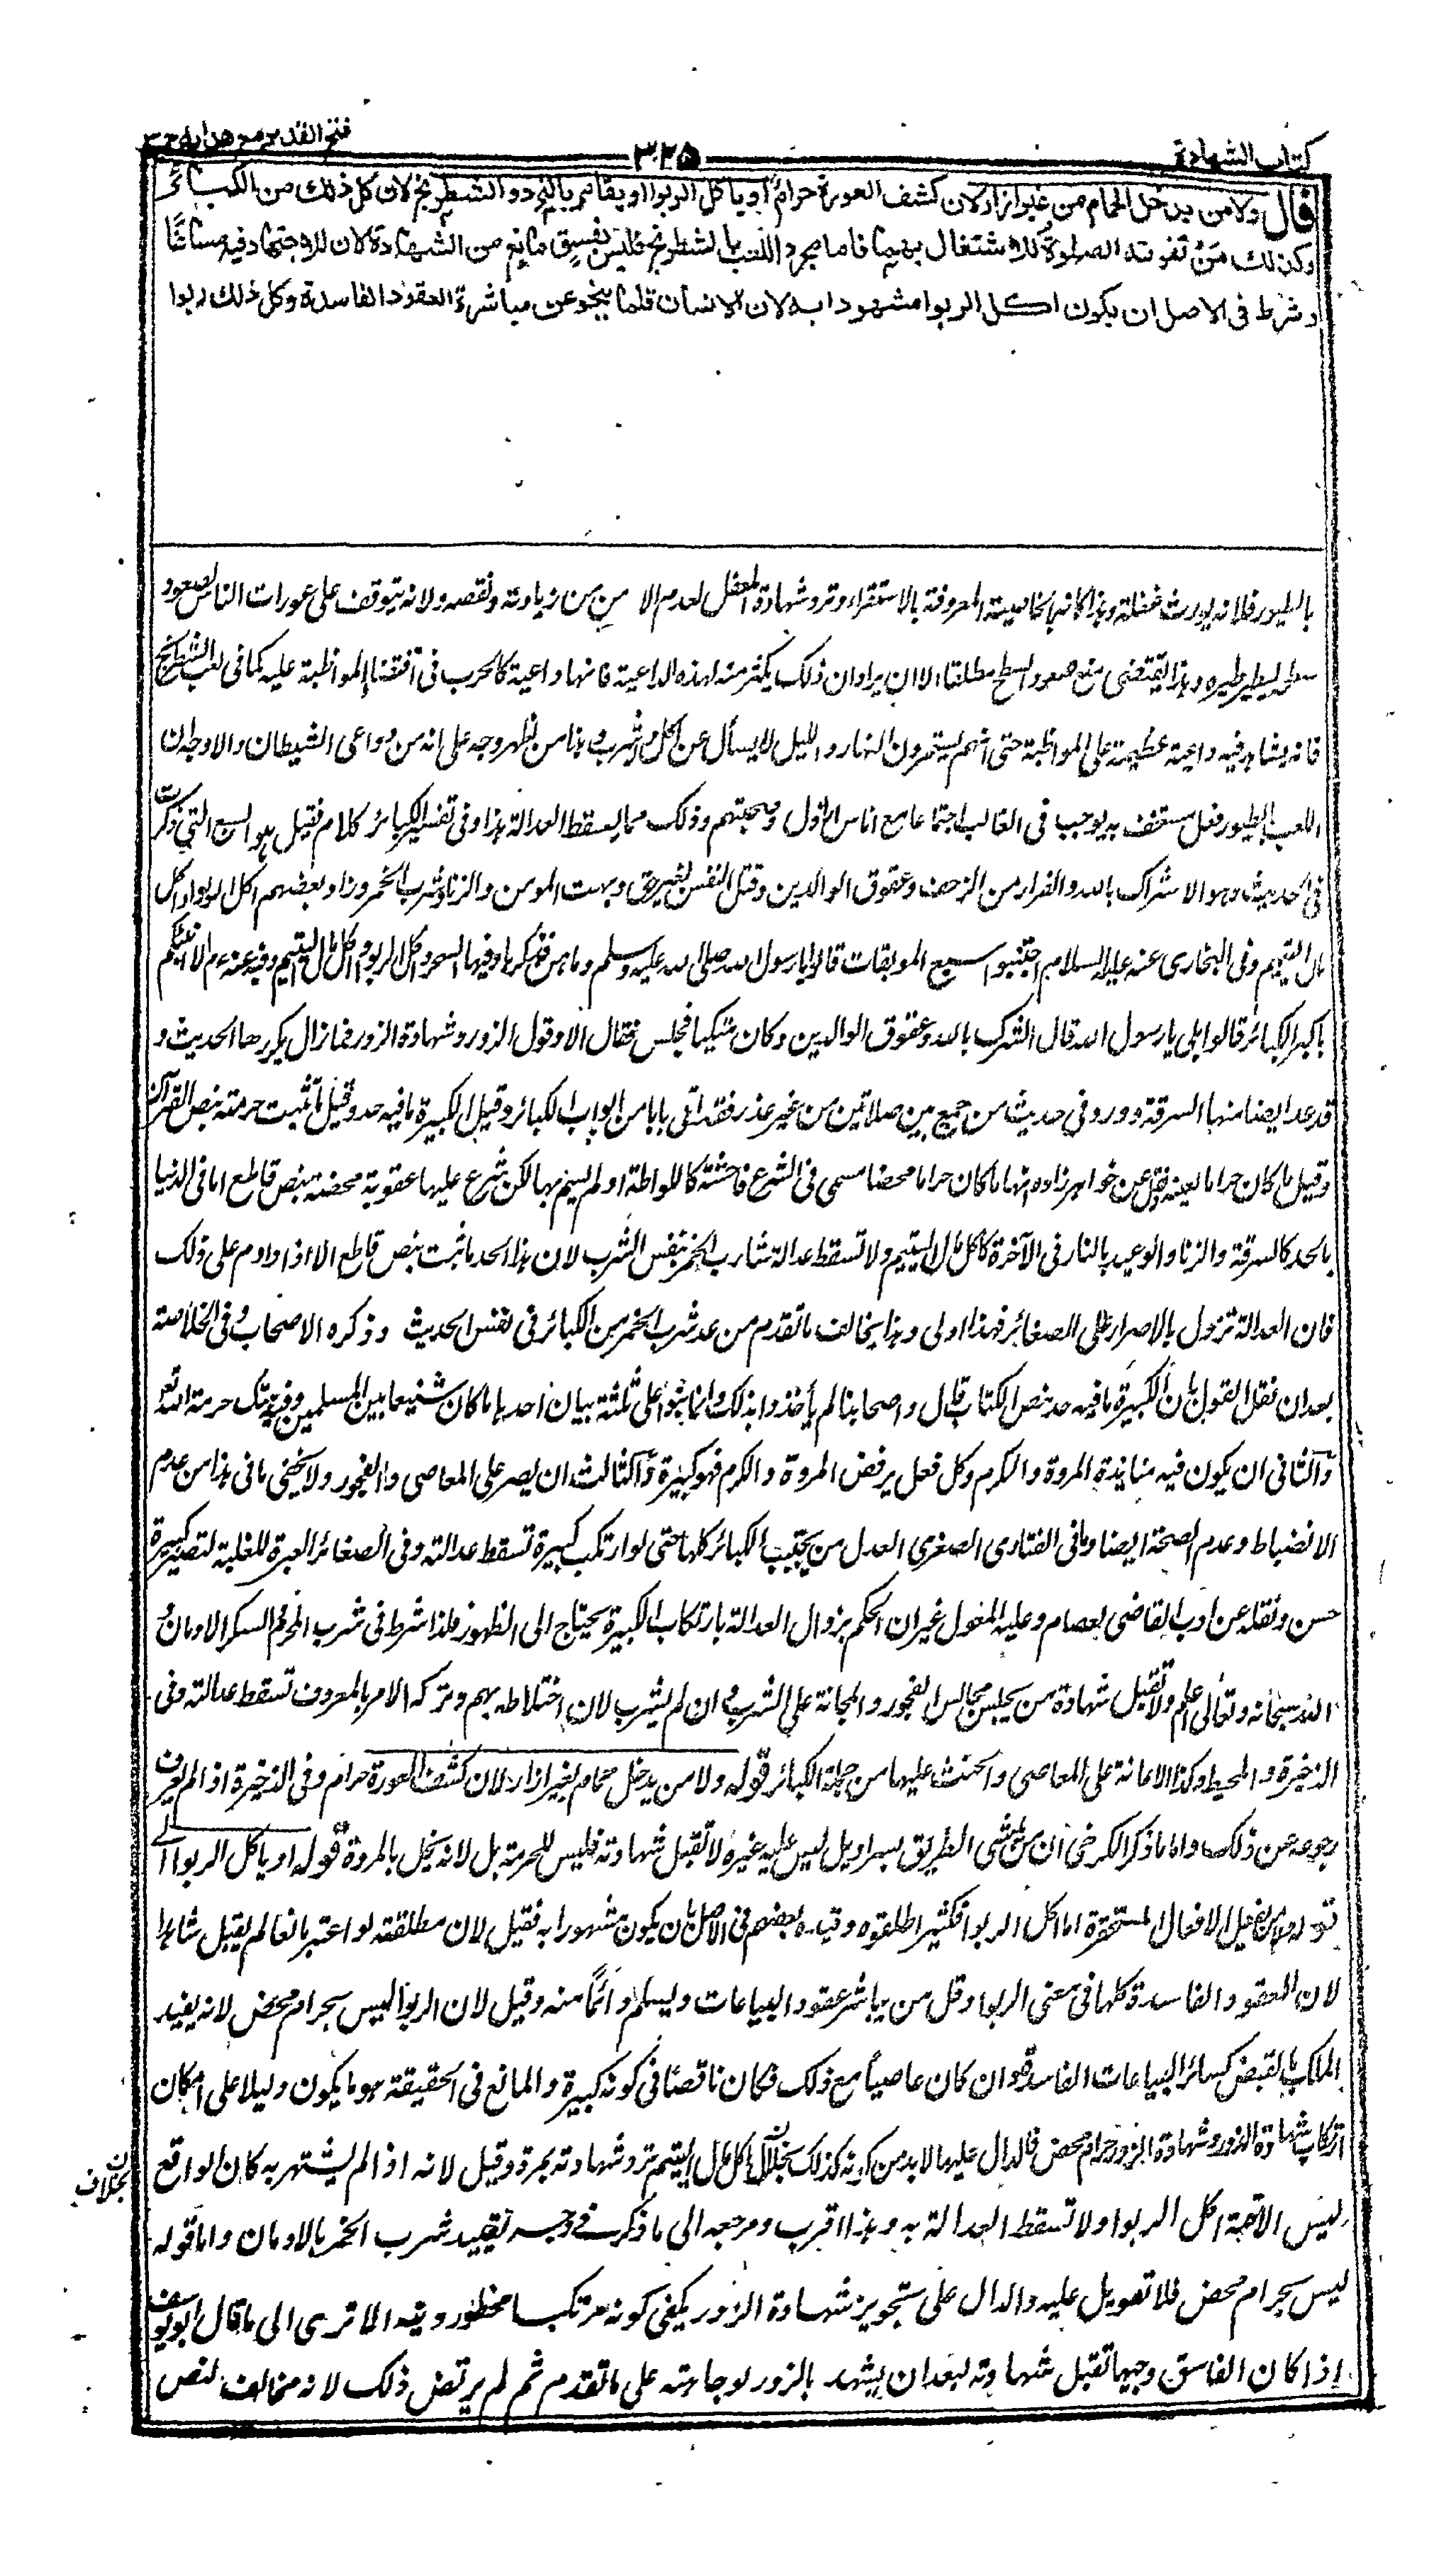 كتاب الشهادة
٣٢٥
فتح القدير مع هدايه ج ٣
قال ولا من يدخل الحمام من غير ازار لان كشف العورة حرام او ياكل الربوا او يقامر بالنرد والشطرنج لان كل ذلك من الكبائر
وكذلك من تفوته الصلوة للاشتغال بهما فاما مجرد اللعب بالشطرنج فليس بفسق مانع من الشهادة لان للاجتهاد فيه مساغا
وشرط فى الاصل ان يكون اكل الربوا مشهودا به لان الانسان قلما ينجو عن مباشرة العقود الفاسدة وكل ذلك ربوا
بالطيور فلانه يورث غفلة وهذا كانه بالخاصية المعروفة بالاستقراء وترد شهادة المغفل لعدم الا من من زيادته ونقصه ولانه يتوقف على عورات الناس لصعود
سطحه ليطير طيره وهذا يقتضى منع صعود السطح مطلقا الا ان يراد ان ذلك يكثر منه لهذه الداعية فانها داعية كالحرب فى اقتضاء المواظبة عليه كما فى لعب الشطرنج
فانه يشاهد فيه داعية عظيمة على المواظبة حتى انهم يستمرون النهار والليل لا يسأل عن اكل وشرب وهذا من اظهر وجه على انه من دواعى الشيطان والاوجه ان
اللعب بالطيور فعل مستخف به يوجب فى الغالب اجتماعا مع اناس اراذل وصحبتهم وذلك مما يسقط العدالة هذا وفى تفسير الكبائر كلام فقيل هو السبع التى ذكرت
فى الحديث وهو الاشراك بالله والفرار من الزحف وعقوق الوالدين وقتل النفس بغير حق وبهت المومن والزنا وشرب الخمر وزاد بعضهم اكل الربوا واكل
مال اليتيم وفى البخارى عنه عليه السلام اجتنبوا السبع الموبقات قالوا يا رسول الله صلى الله عليه وسلم وما هن فذكرها وفيها السحر واكل الربوا واكل مال اليتيم وفيه عنه ع م الا انبئكم
باكبر الكبائر قالوا بلى يا رسول الله قال الشرك بالله وعقوق الوالدين وكان متكيا فجلس فقال الا وقول الزور وشهادة الزور فما زال يكررها الحديث و
قد عد ايضا منها السرقة وورد فى حديث من جمع بين صلاتين من غير عذر فقد اتى بابا من ابواب الكبائر وقيل الكبيرة ما فيه حد وقيل ما ثبت حرمته بنص القرآن
وقيل ما كان حراما لعينه ونقل عن خواهر زاده انها ما كان حراما محضا مسمى فى الشرع فاحشة كاللواطة او لم يسم بها لكن شرع عليها عقوبة محضة بنص قاطع اما فى الدنيا
بالحد كالسرقة والزنا او الوعيد بالنار فى الآخرة كاكل مال اليتيم ولا تسقط عدالة شارب الخمر بنفس الشرب لان هذا الحد ما ثبت بنص قاطع الا اذا داوم على ذلك
فان العدالة تزول بالاصرار على الصغائر فهذا اولى وهذا يخالف ما تقدم من عد شرب الخمر من الكبائر فى نفس الحديث وذكره الاصحاب وفى الخلاصة
بعد ان نقل القول بان الكبيرة ما فيه حد بنص الكتاب قال واصحابنا لم يأخذوا بذلك وانما بنوا على ثلثة بيان احدها ما كان شنيعا بين المسلمين وفيه هتك حرمة الله تع
والثانى ان يكون فيه منابذة المروة والكرم وكل فعل يرفض المروة والكرم فهو كبيرة والثالث ان يصر على المعاصى والفجور ولا يخفى ما فى هذا من عدم
الانضباط وعدم الصحة ايضا وما فى الفتاوى الصغرى العدل من يجتنب الكبائر كلها حتى لو ارتكب كبيرة تسقط عدالته وفى الصغائر العبرة للغلبة لتصير كبيرة
حسن ونقله عن ادب القاضى لعصام وعليه المعول غير ان الحكم بزوال العدالة بارتكاب الكبيرة يحتاج الى الظهور فلذا شرط فى شرب المحرم والسكر الادمان و
الله سبحانه وتعالى اعلم ولا تقبل شهادة من يجلس مجالس الفجور والمجانة على الشرب وان لم يشرب لان اختلاطه بهم وتركه الامر بالمعروف تسقط عدالته وفى
الذخيرة والمحيط وكذا الاعانة على المعاصى والحث عليها من جملة الكبائر قوله ولا من يدخل حمام بغير ازار لان كشف العورة حرام وفى الذخيرة اذا لم يعرف
رجوعه عن ذلك واما ما ذكر الكرخى ان من يمشى الطريق بسراويل ليس عليه غيره لا تقبل شهادته فليس للحرمة بل لانه يخل بالمروة قوله او ياكل الربوا الى
قوله ولا من يفعل الافعال المستحقرة اما اكل الربوا فكثير اطلقوه وقيده بعضهم فى الاصل بان يكون مشهورا به فقيل لان مطلقه لو اعتبر مانعا لم يقبل شاهدا
لان العقود الفاسدة كلها فى معنى الربوا وقل من يباشر عقود البياعات ويسلم دائما منه وقيل لان الربوا ليس بحرام محض لانه يفيد
الملك بالقبض كسائر البياعات الفاسدة وان كان عاصيا مع ذلك فكان ناقصا فى كونه كبيرة والمانع فى الحقيقة هو ما يكون دليلا على امكان
ارتكاب شهادة الزور وشهادة الزور حرام محض فالدال عليها لا بد من كونه كذلك بخلاف اكل مال اليتيم ترد شهادته بمرة وقيل لانه اذا لم يشتهر به كان الواقع
بخلاف
ليس الا تهمة اكل الربوا ولا تسقط العدالة به وهذا اقرب ومرجعه الى ما ذكرت فى وجه تقييد شرب الخمر بالادمان واما قوله
ليس بحرام محض فلا تعويل عليه والدال على تجويز شهادة الزور يكفى كونه مرتكبا محظور دينه الا ترى الى ما قال ابو يوسف
اذا كان الفاسق وجيها تقبل شهادته لبعد ان يشهد بالزور لوجاهته على ما تقدم ثم لم يرتض ذلك لانه مخالف لنص